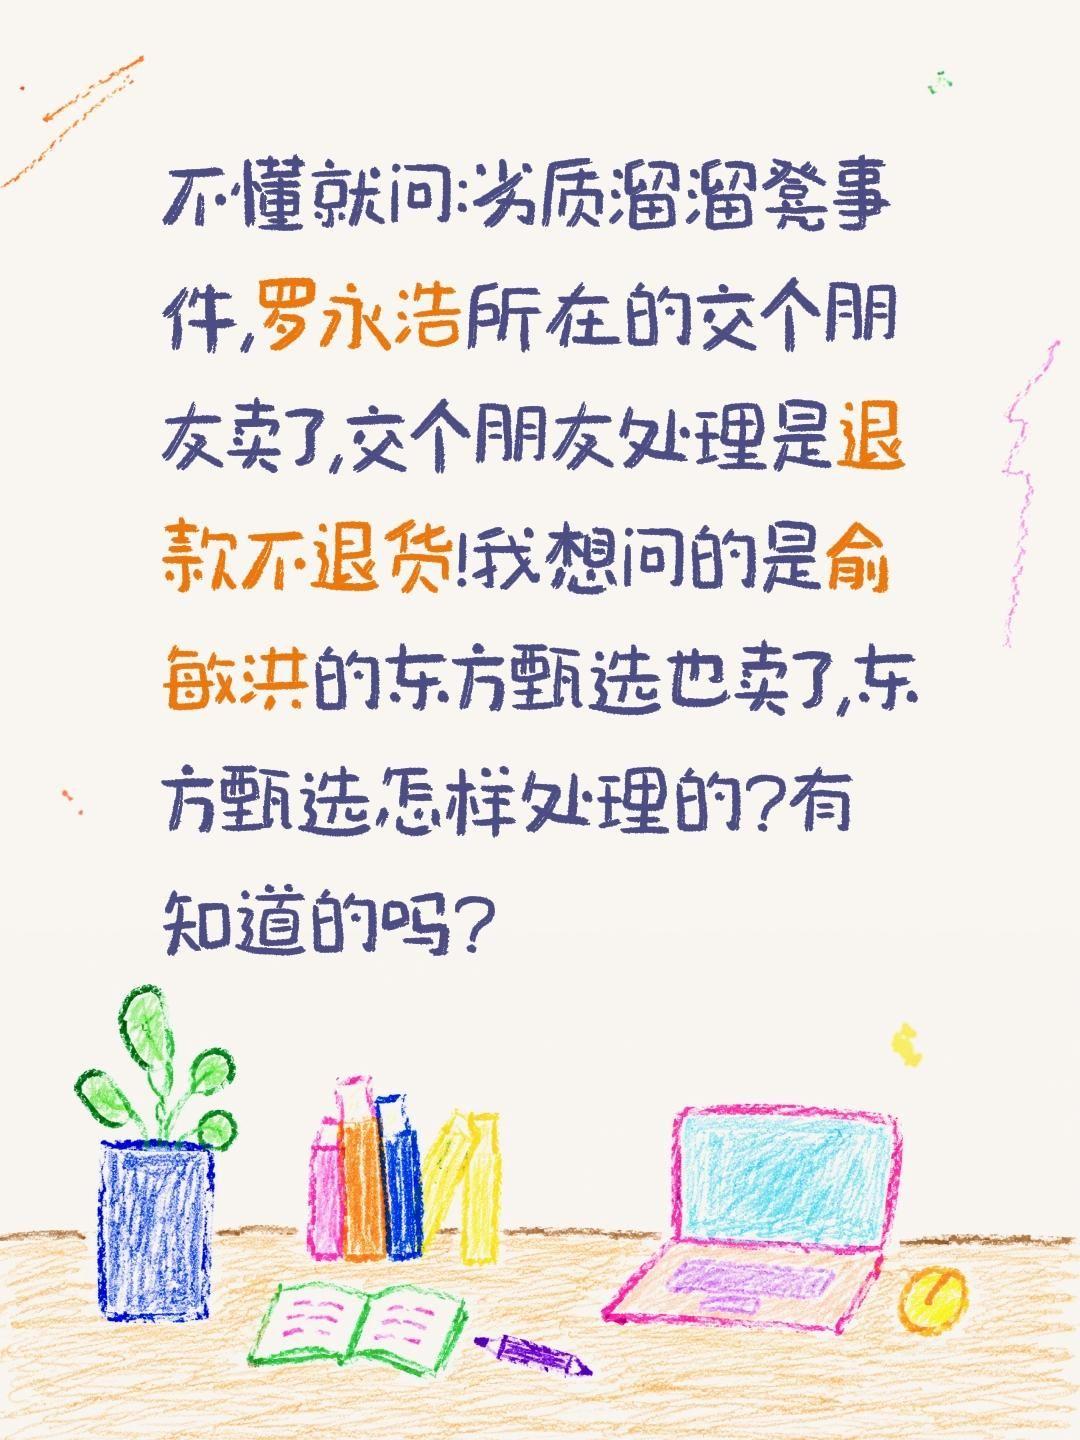 不懂就问:劣质溜溜凳事
件,罗永浩所在的交个朋
友卖了,交个朋友处理是退
款不退货!我想问的是俞
敏洪的东方甄选也卖了,东
方甄选怎样处理的?有
知道的吗?